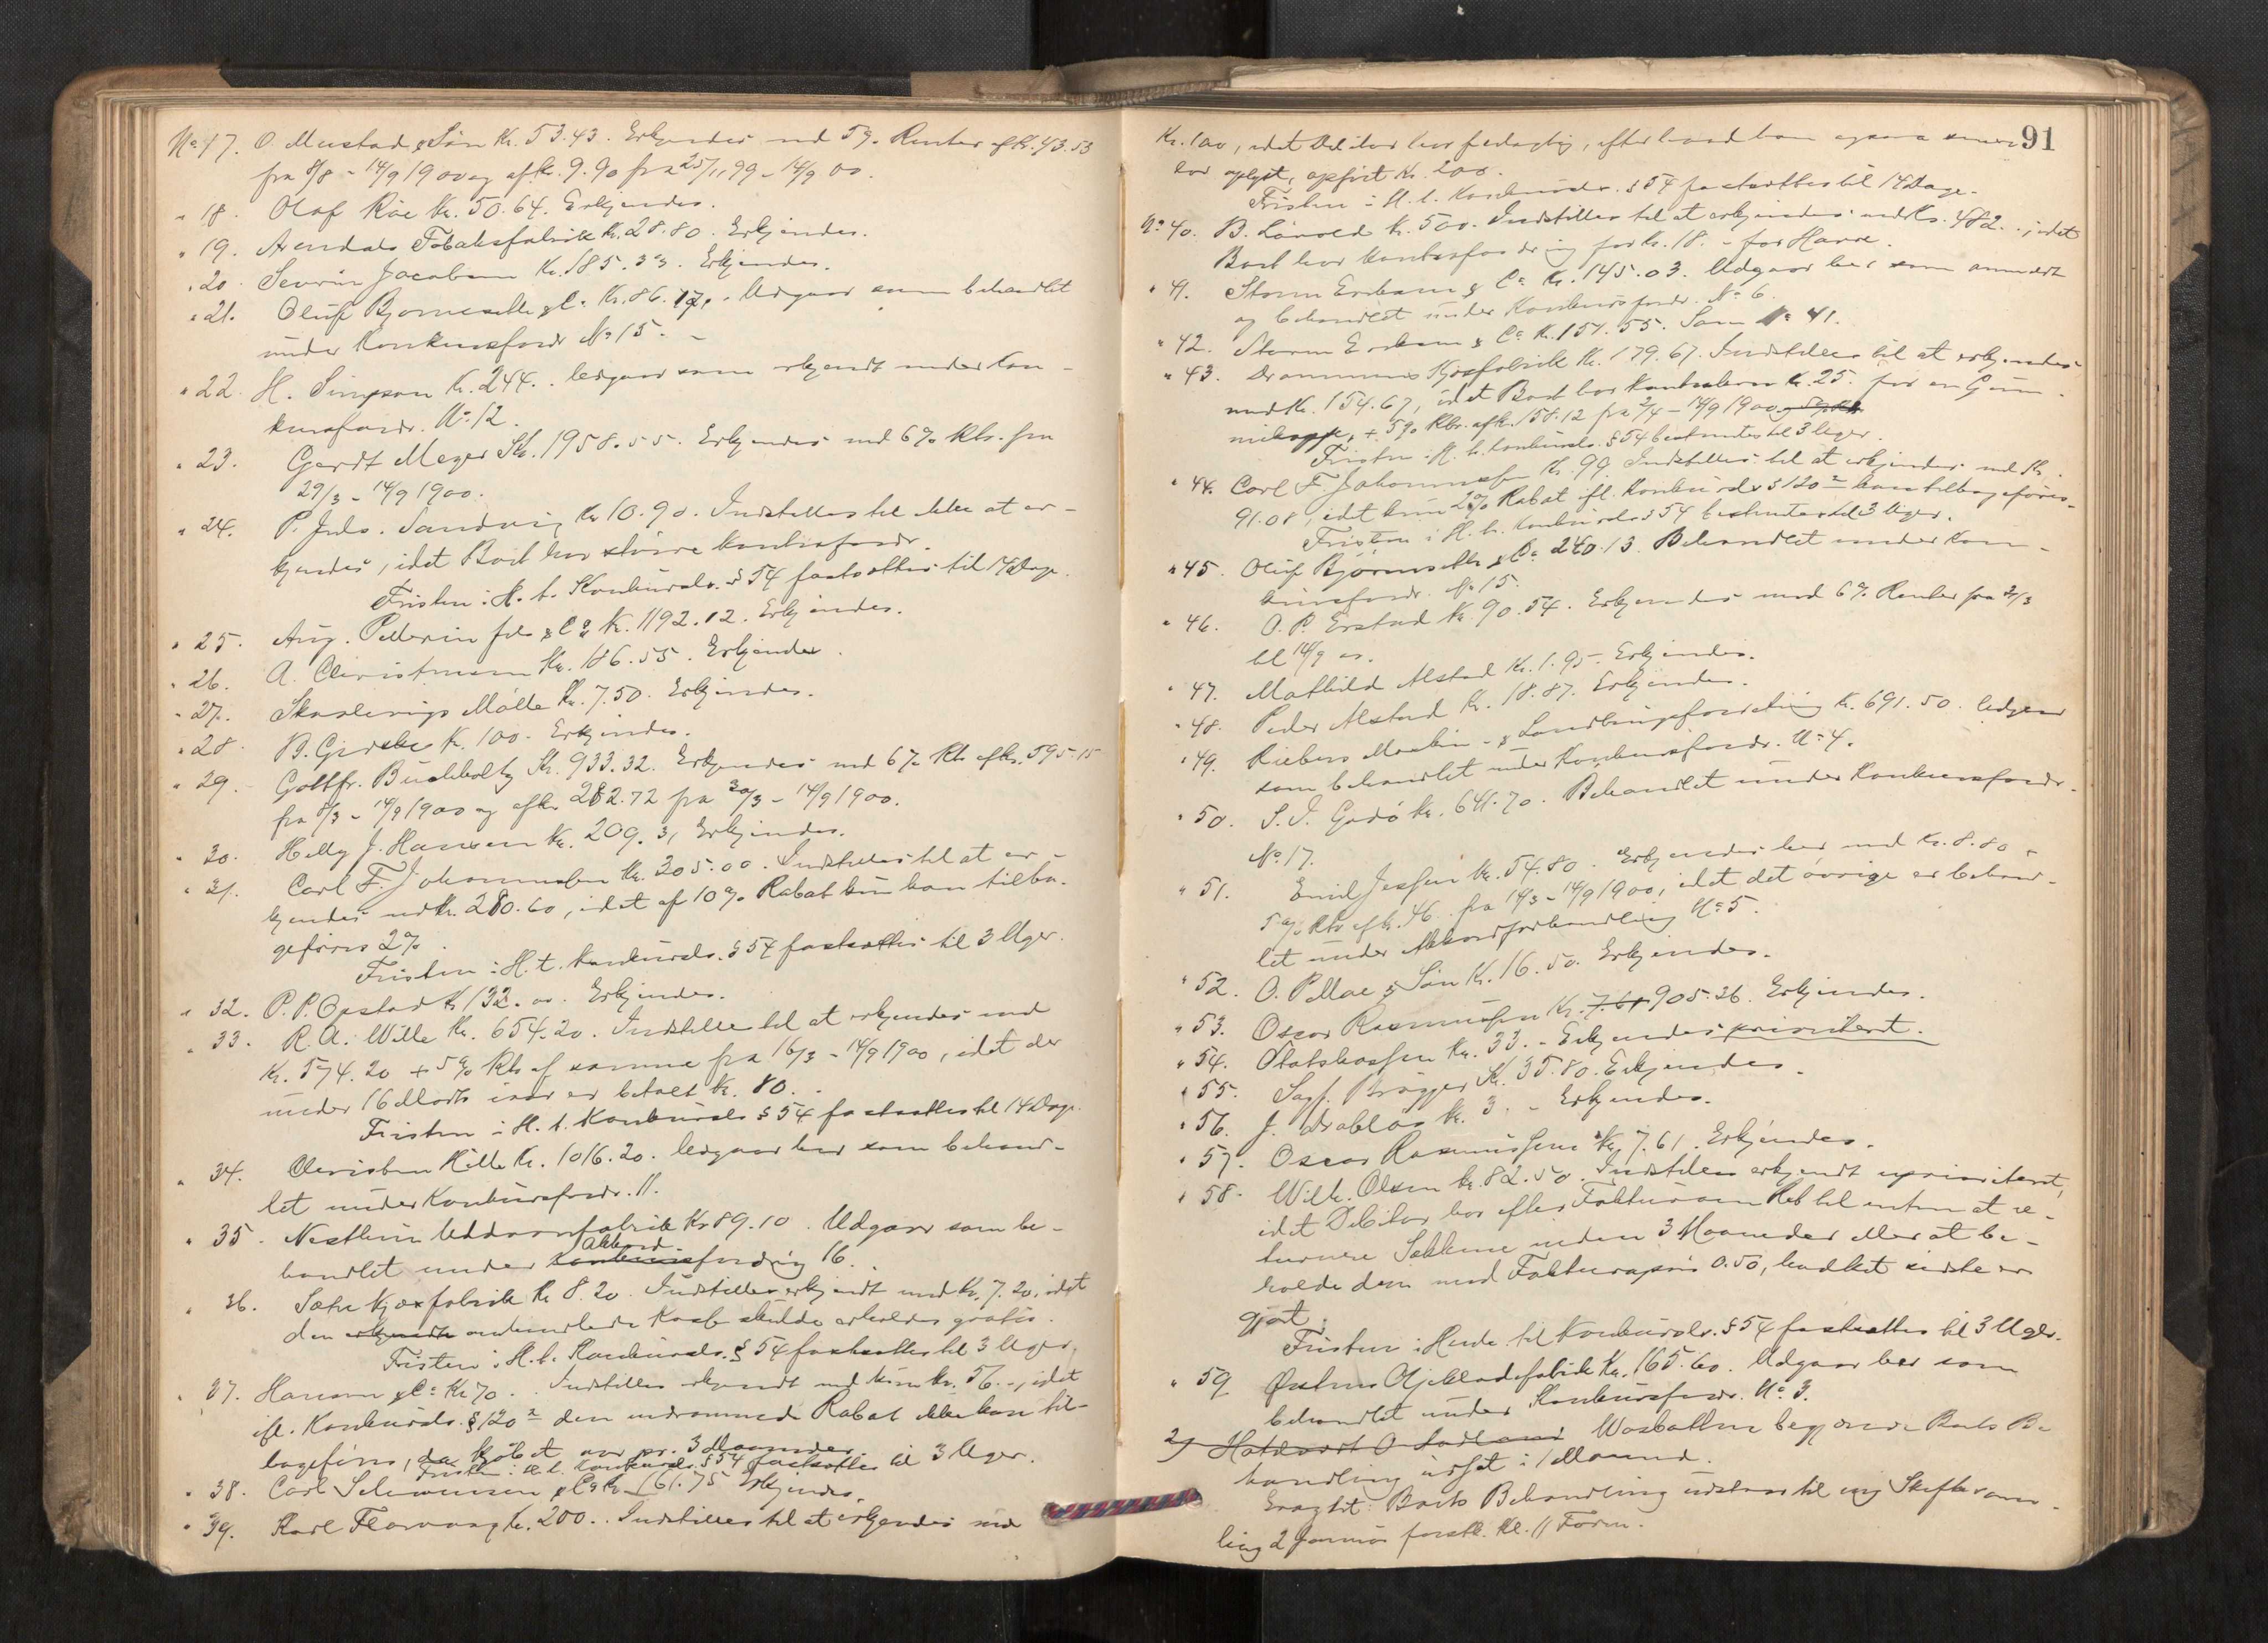 No 17. O. Mustad & Søn Kr. 53.43. Erkjendes med 5% Renter af Kr. 43.53
fra 8/8 - 14/9 1900 og af Kr. 9.90 fra 25/11 99 - 14/9 00.
" 18. Olaf Röe Kr. 50.64. Erkjendes.
" 19. Arendals Tobaksfabrik Kr. 28.80. Erkjendes.
" 20. Severin Jacobsen Kr. 185.33. Erkjendes.
" 21. Oluf Bjørneseth & Co Kr. 86.17. Udgaar som behandlet
under Konkursfordr. No 15. -
" 22. H. Simpson Kr. 244.. Udgaar som erkjendt under Kon-
kursfordr. No 12.
" 23. Gerdt Meyer Kr. 1958.55. Erkjendes med 6% Rtr. fra
29/3 - 14/9 1900.
" 24. P. Juls. Sandvig Kr. 10.90. Indstilles til ikke at er-
kjendes, idet Boet har større Kontrafordr.
Fristen i H. t. Konkursls. § 54 fastsættes til 14 Dage.
" 25. Aug. Pellerin fils & Co Kr. 1192.12. Erkjendes.
" 26. A. Christensen Kr. 186.55. Erkjendes.
" 27. Mölle Kr. 7.50. Erkjendes.
" 28. B. Giertsen Kr. 100. Erkjendes.
" 29. Gottfr. Buchholtz Kr. 933.32. Erkjendes med 6% Rtr. af Kr. 595.15
fra 8/3 - 14/9 1900 og af Kr. 282.72 fra 30/3 - 14/9 1900.
" 30. Helly J. Hansen Kr. 209.31 Erkjendes.
" 31. Carl F. Johannessen Kr. 305.00. Indstilles til at er-
kjendes med Kr. 280.60, idet af 10% Rabat kun kan tilba-
geføres 2%.
Fristen i H. t. Konkursls. § 54 fastsættes til 3 Uger.
" 32. P. P. Opstad Kr. 132.00. Erkjendes.
" 33. R. A. Wille Kr. 654.20. Indstilles til at erkjendes med
Kr. 574.20 + 5% Rtr. af samme fra 16/3 - 14/9 1900, idet der
under 16 Marts iaar er betalt Kr. 80..
Fristen i H. t. Konkursls § 54 fastsættes til 14 Dage.
" 34. Christen Hille Kr. 1016.20. Udgaar her som behand-
let under Konkursfordr. 11.
" 35. Nesttun Uldvarefabrik Kr. 89.10. Udgaar som be-
handlet under Akkordfordring 16.
" 36. Sætre Kjæxfabrik Kr. 8.20. Indstilles erkjendt med Kr. 7.20, idet
den Kasse skulde erholdes gratis.
Fristen i H. t. Konkursls. § 54 fastsættes til 3 Uger.
" 37. Hansen & Co Kr. 70.. Indstilles erkjendt med kun Kr. 56.-, idet
ifl. Konkursls. § 120² den indrømmede Rabat ikke kan til-
bageføres, da Kjøbet var pr. 3 Maaneder.
Fristen i H. t. Konkursls. § 54 fastsættes til 3 Uger.
" 38. Carl & Co Kr. 161.75 Erkjendes.
" 39. Karl Kr. 200.. Indstilles til at erkjendes med
91
Kr. 100, idet Debitor har fradragtig, efter hvad han ogsaa
har oplyst, opført Kr. 200.
Fristen i H. t. Konkursls. § 54 fastsættes til 14 Dage.
No 40. B. Løvold Kr. 500. Indstilles til at erkjendes med Kr. 482.., idet
Boet har kontrafordring for Kr. 18. - for Havre.
" 41. Storm Eriksen & Co Kr. 145.03. Udgaar her som anmeldt
og behandlet under Konkursfordr. No 6.
" 42. Storm Eriksen & Co Kr. 151.55. Som No 41.
" 43. Drammens Kjæxfabrik Kr. 179.67. Indstilles til at erkjendes
med Kr. 154.67, idet Boet har Kontrakrav Kr. 25. for en Gum-
+ 5% Rtr. af Kr. 158.12 fra 2/4 - 14/9 1900
Fristen i H. t. Konkursls. § 54 bestemtes til 3 Uger.
" 44. Carl F. Johannessen Kr. 99 Indstilles til at erkjendes med Kr.
91.08, idet kun 2% Rabat ifl. Konkursls § 120² kan tilbageføres.
Fristen i H. t. Konkursls § 54 bestemtes til 3 Uger.
" 45. Oluf Bjørneseth & Co 240.13. Behandlet under Kon-
kursfordr. No 15.
" 46. O. P. Erstad Kr. 90.54. Erkjendes med 6% Renter fra 2/3
til 14/9 00.
" 47. Mathild Alstad Kr. 1.95. Erkjendes.
" 48. Peder Alstad Kr. 18.87. Erkjendes.
" 49. Riebers Maskin- & Landbrugsforretning Kr. 691.50. Udgaar
som behandlet under Konkursfordr. No 4.
" 50. S. I. Godö Kr. 641.70. Behandlet under Konkursfordr.
No 17.
" 51. Emil Jessen Kr. 54.80. Erkjendes her med Kr. 8.80 +
5% Rtr af Kr. 46. fra 14/3 - 14/9 1900, idet det øvrige er behand-
let under Akkordforhandling No 5.
" 52. O. Pellae & Søn Kr. 16.50. Erkjendes.
" 53. Oscar Rasmussen Kr. 7.61 905.36. Erkjendes.
" 54. Statskassen Kr. 33. - Erkjendes prioriteret.
" 55. Sagf. Brøgger Kr. 35.80. Erkjendes.
" 56. J. Drabløs Kr. 3. - Erkjendes.
" 57. Oscar Rasmussens Kr. 7.61. Erkjendes.
" 58. Wilh. Olsen Kr. 82.50. Indstilles erkjendt uprioriteret,
idet Debitor har efter Fakturaen Ret til enten at re-
turnere Sækkene inden 3 Maaneder eller at be-
holde dem med Fakturapris 0.50, hvilket sidste er
gjort.
Fristen i Henh. til Konkursls. § 54 fastsættes til 3 Uger.
" 59 Oljeklædefabrik Kr. 165.60. Udgaar her som
behandlet under Konkursfordr. No 3.
2) begjærede Boets Be-
handling udsat i 1 Maaned.
Eragtet: Boets Behandling udstaar til ny Skiftesam-
ling 2 Januar førstk. Kl. 11 Form.